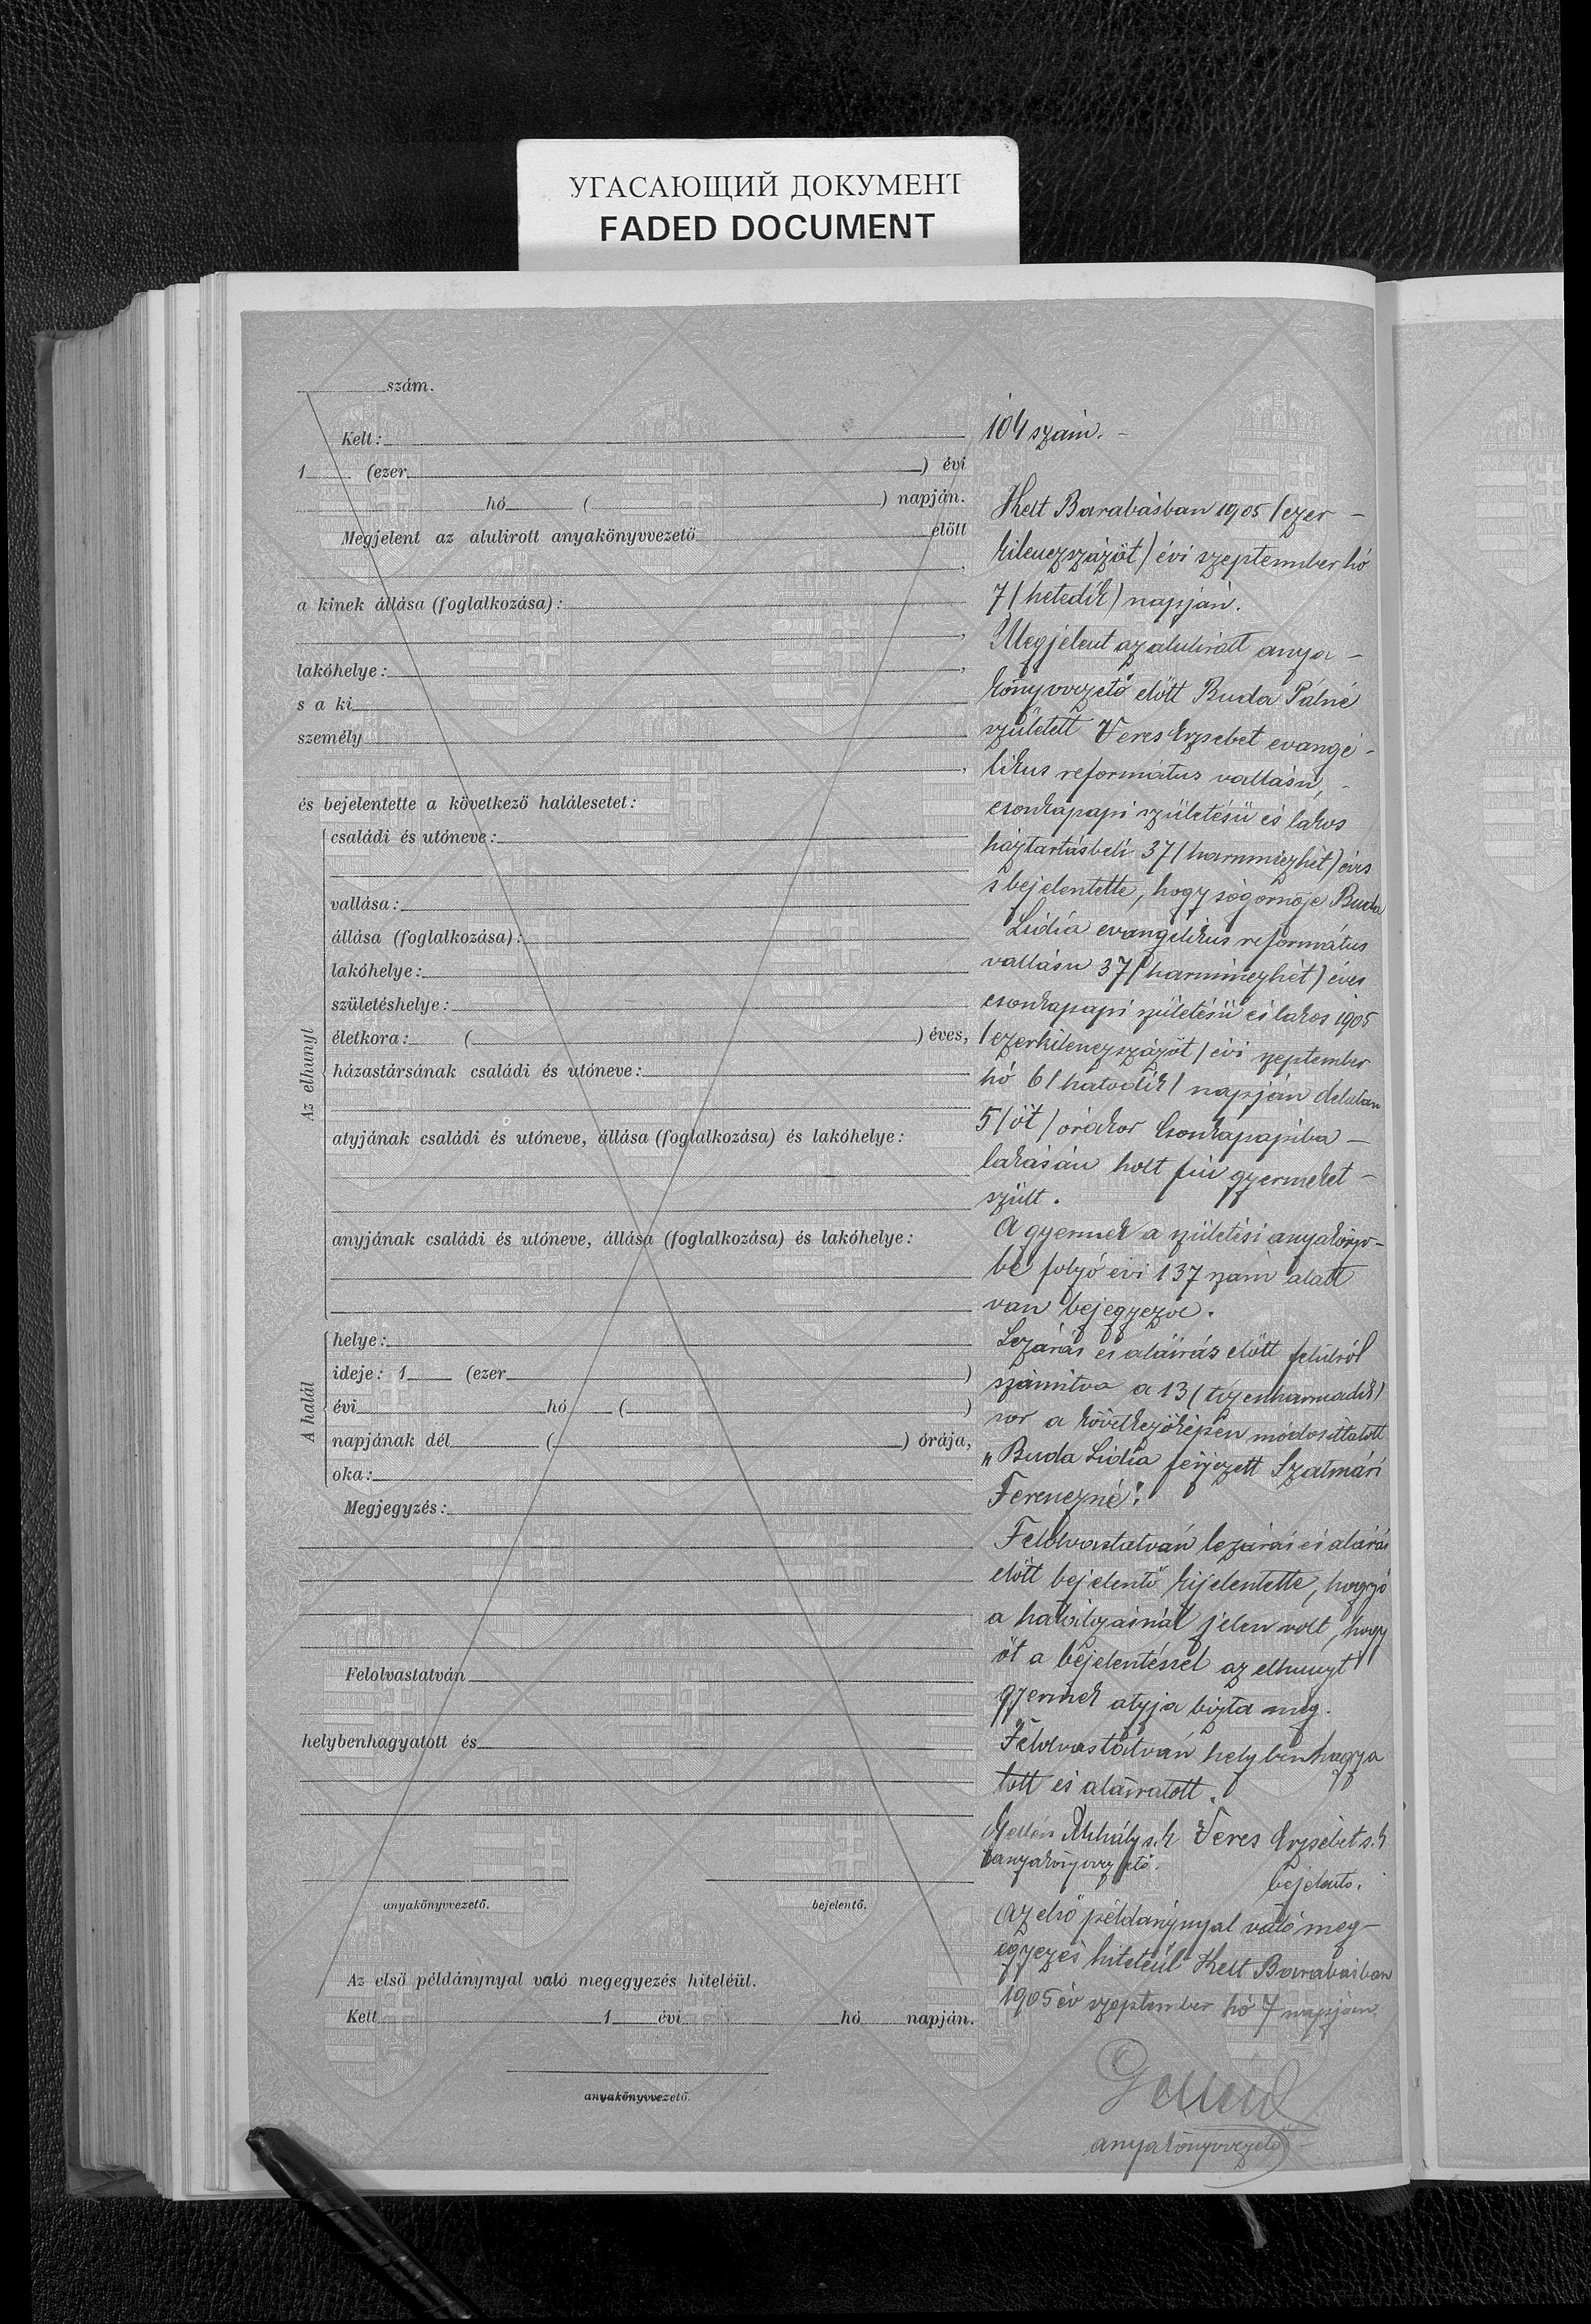 УГАСАЮЩИЙ ДОКУМЕНТ
FADED DOCUMENT
szám.
Kelt:
1 (ezer ) évi
hó ( ) napján.
Megjelent az alulirott anyakönyvvezető előtt
,
a kinek állása (foglalkozása):
,
lakóhelye: ,
s a ki
személy
,
és bejelentette a következő halálesetet:
Az elhunyt
családi és utóneve:
vallása:
állása (foglalkozása):
lakóhelye:
születéshelye:
életkora: ( ) éves,
házastársának családi és utóneve:
atyjának családi és utóneve, állása (foglalkozása) és lakóhelye:
anyjának családi és utóneve, állása (foglalkozása) és lakóhelye:
A halál
helye:
ideje: 1 (ezer )
évi hó ( )
napjának dél ( ) órája,
oka:
Megjegyzés:
Felolvastatván
helybenhagyatott és
anyakönyvvezető. bejelentő.
Az első példánynyal való megegyezés hiteléül.
Kelt 1 évi hó napján.
anyakönyvvezető.
104 szám. -
Kelt Barabásban 1905 (ezer -
kilenczszázöt) évi szeptember hó
7 (hetedik) napján.
Megjelent az alulirott anya -
könyvvezető előtt Buda Pálné
született Veres Erzsebet evangé -
likus református vallásu, -
csonkapapi születésü és lakos
háztartásbeli 37 (harminczhét) éves
s bejelentette, hogy sógornője Buda
Lidia evangélikus református
vallásu 37 (harminczhét) éves
csonkapapi születésü és lakos 1905
(ezerkilenczszázöt) évi szeptember
hó 6 (hatodik) napján délután
5 (öt) órakor Csonkapapiba -
lakásán holt fiu gyermeket -
szült.
A gyermek a születési anyakönyv-
be folyó évi 137 szám alatt
van bejegyezve.
Lezárás és aláirás előtt felülről
számitva a 13 (tizenharmadik)
sor a következőképen módosittatott
„Buda Lidia férjezett Szatmári
Ferenczné".
Felolvastatván lezárás és aláirás
előtt bejelentő kijelentette, hogy ő
a halálozásnál jelen volt, hogy
őt a bejelentéssel az elhunyt
gyermek atyja bizta meg.
Felolvastatván helybenhagya
tott és aláiratott.
Mihály s.k Veres Erzsébet s.k
anyakönyvvezető.
bejelentő.
Az első példánynyal való meg-
egyezés hiteléül Kelt Barabásban
1905 év szeptember hó 7 napján.
anyakönyvvezető